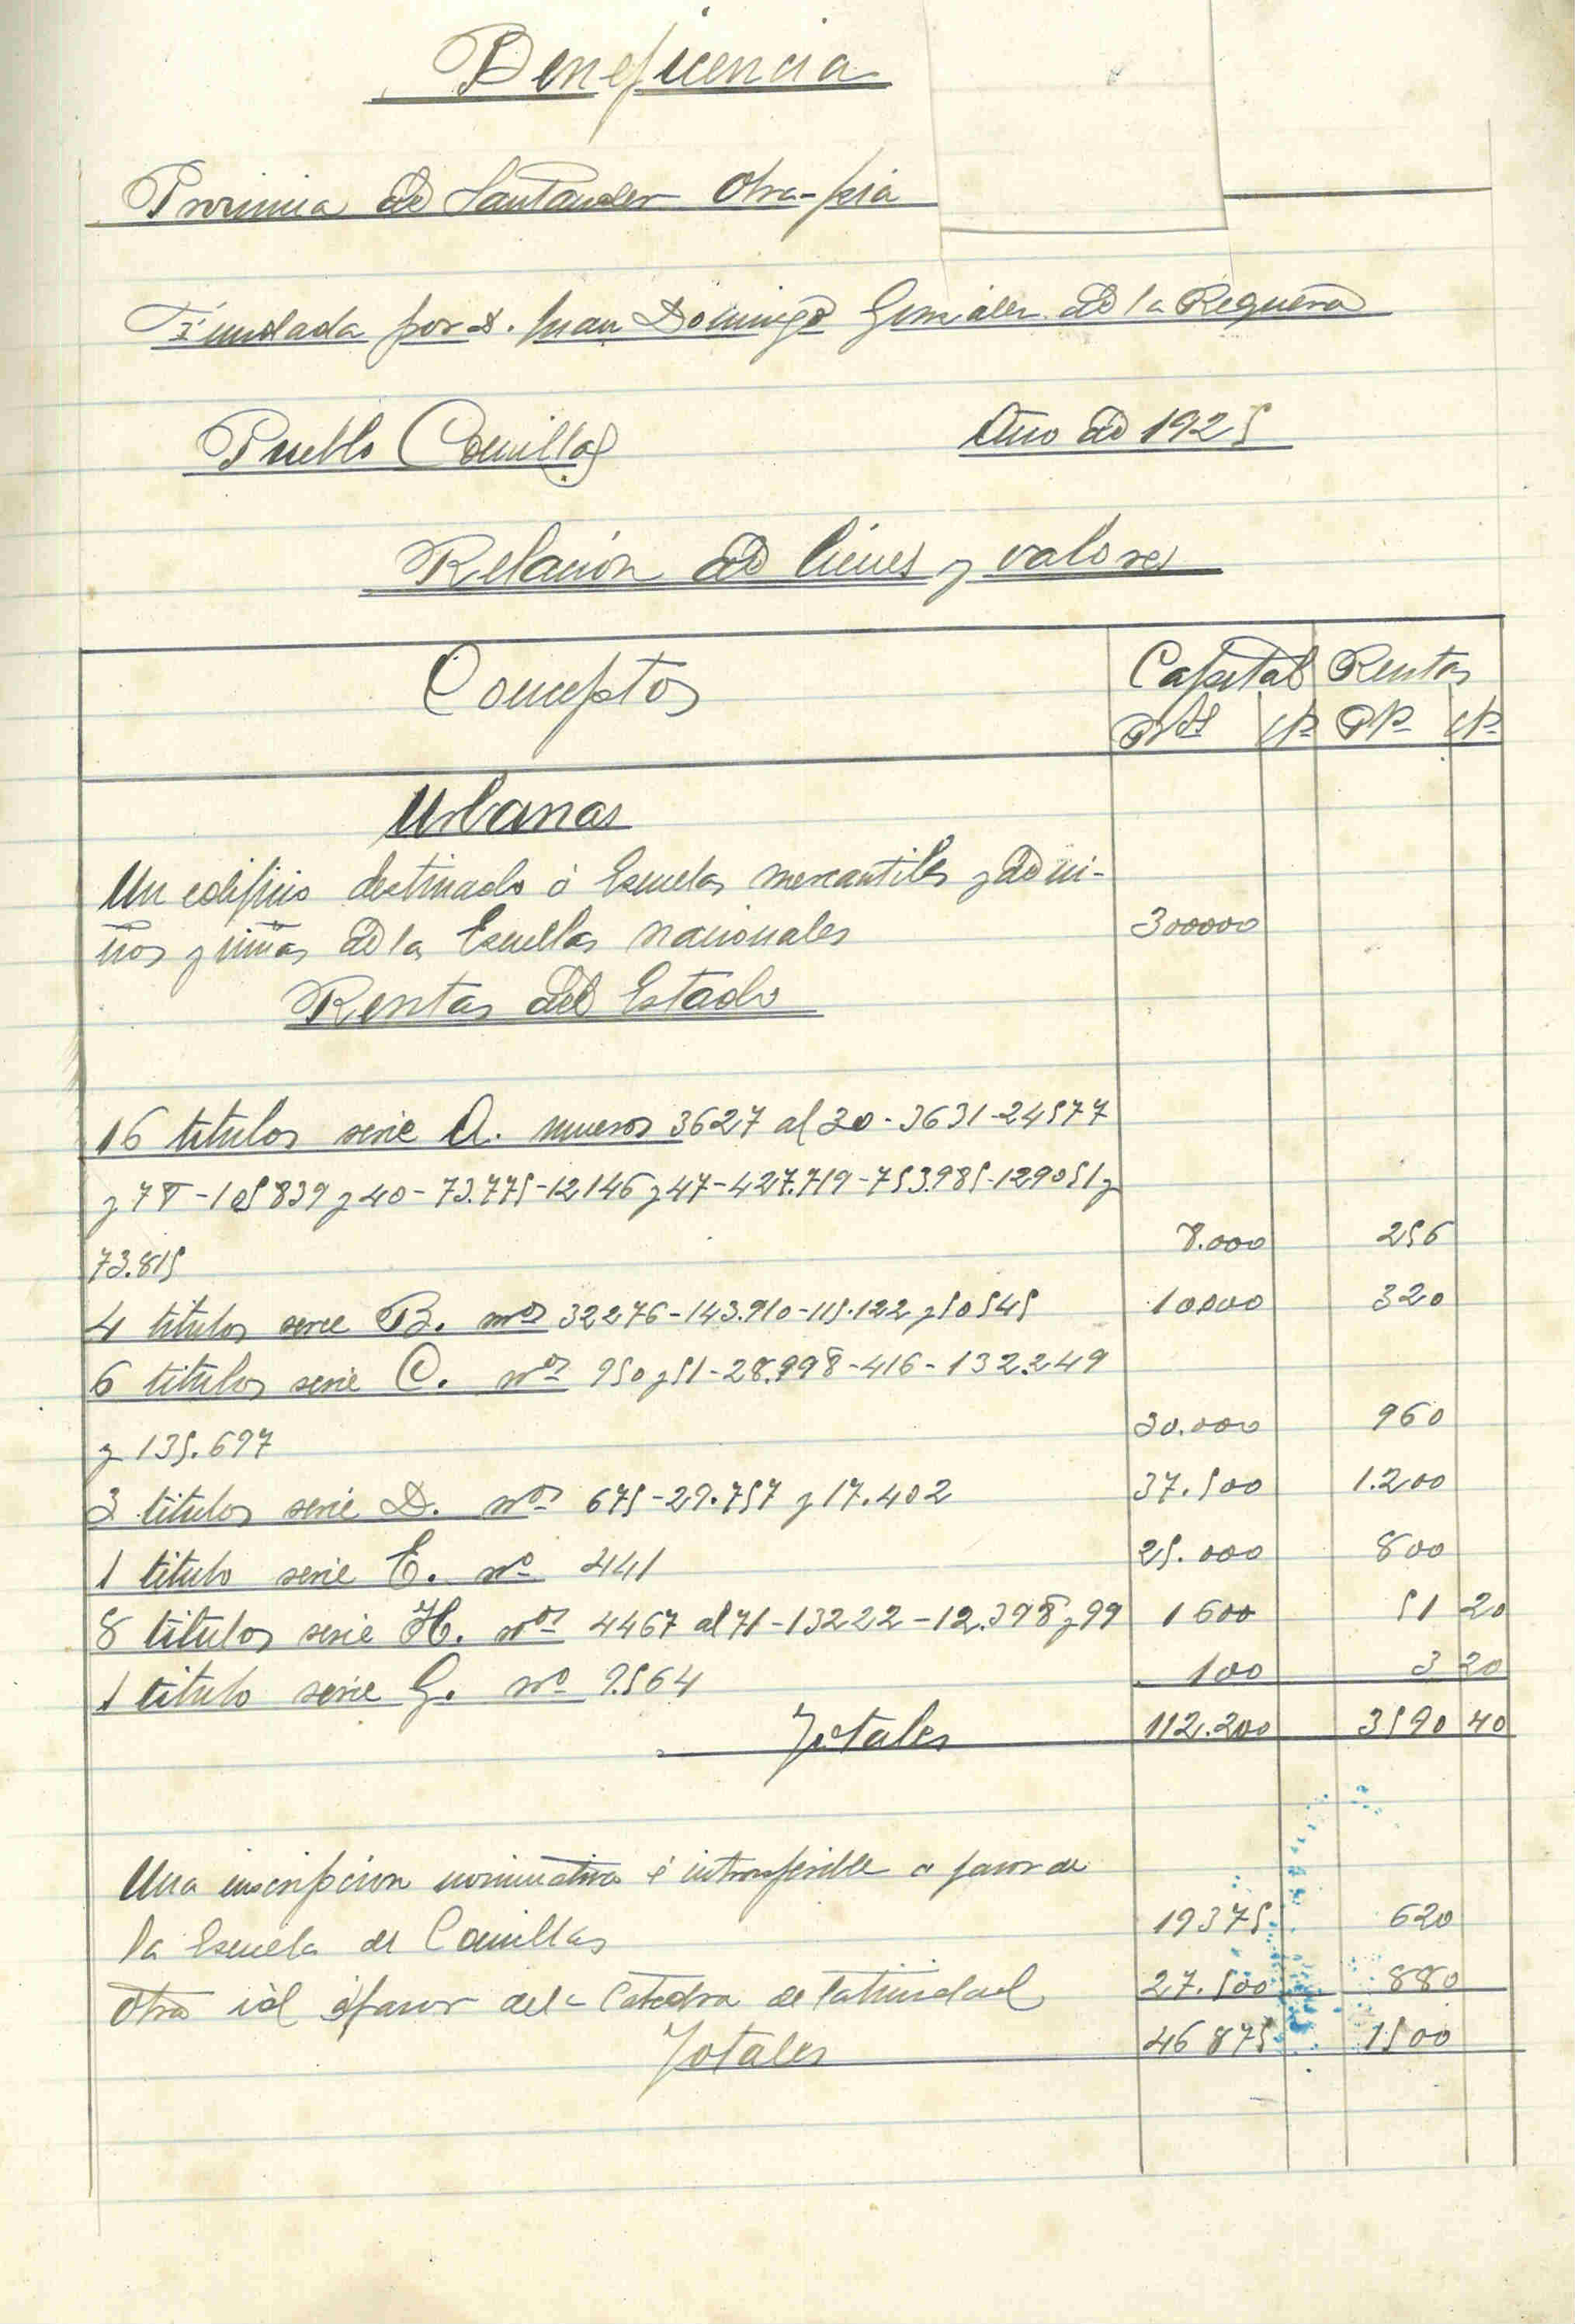 Beneficencia
Provincia de Santander Obra-pia
Fundada por D. Juan Domingo González de la Reguera
Pueblo Comillas Año de 1925
Relación de bienes y valores
Conceptos Capital Rentas
Pts Cts Pts Cts
Urbanas
Un edificio destinado á Escuelas mercantiles y de ni-
ños y niñas de la Escuelas nacionales 300000
Rentas del Estado
16 titulos serie A. numeros 3627 al 30-3631-24577
y 78-105839 y 40-73.775-12146 y 47-427.719-753.985-129051 y
73.815 8.000 256
4 titulos serie B. nos 32276-143.910-115.122 y 50545 10000 320
6 titulos serie C. nos 950 y 51-28.998-416-132.249
y 135.697 30.000 960
3 titulos serie D. nos 675-29.757 y 17.402 37.500 1.200
1 titulo serie E. no 441 25.000 800
8 titulos serie H. nos 4467 al 71-13222-12.398 y 99 1600 51 20
1 titulo serie G. no 9564 100 3 20
Totales 112.200 3590 40
Una inscripcion nominativa é intrasferible a favor de
la Escuela de Comillas 19375 620
Otra id á favor de la Catedra de latinidad 27.500 880
Totales 46875 1500